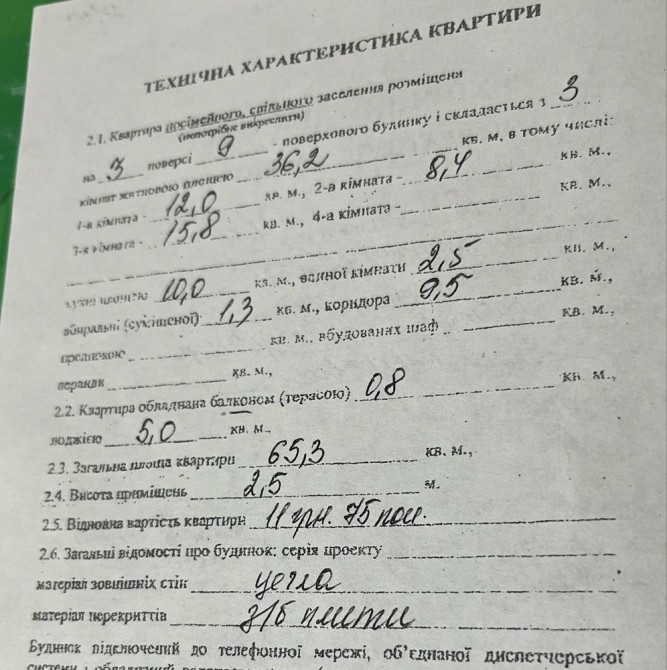 ТЕХНІЧНА ХАРАКТЕРИСТИКА КВАРТИРИ
2.1. Квартира посімейного, спільного заселення розміщена
(непотрібне викреслити)
на 3 поверсі 9 - поверхового будинку і складається з 3
кімнат житловою площею 36,2 кв. м, в тому числі:
1-а кімната - 12,0 кв. м., 2-а кімната - 8,4 кв. м.,
3-я кімната - 15,8 кв. м., 4-а кімната - кв. м.,
кухні площею 10,0 кв. м., ванної кімнати 2,5 кв. м.,
вбиральні (суміщеної) 1,3 кв. м., коридора 9,5 кв. м.,
кв. м., вбудованих шаф кв. м.,
веранди кв. м.,
2.2. Квартира обладнана балконом (терасою) 0,8 кв. м.,
лоджією 5,0 кв. м.,
2.3. Загальна площа квартири 65,3 кв. м.,
2.4. Висота приміщень 2,5 м.
2.5. Відновна вартість квартири 11 грн. 75 коп.
2.6. Загальні відомості про будинок: серія проекту
матеріал зовнішніх стін цегла
матеріал перекриттів з/б плити
Будинок підключений до телефонної мережі, об'єднаної диспетчерської